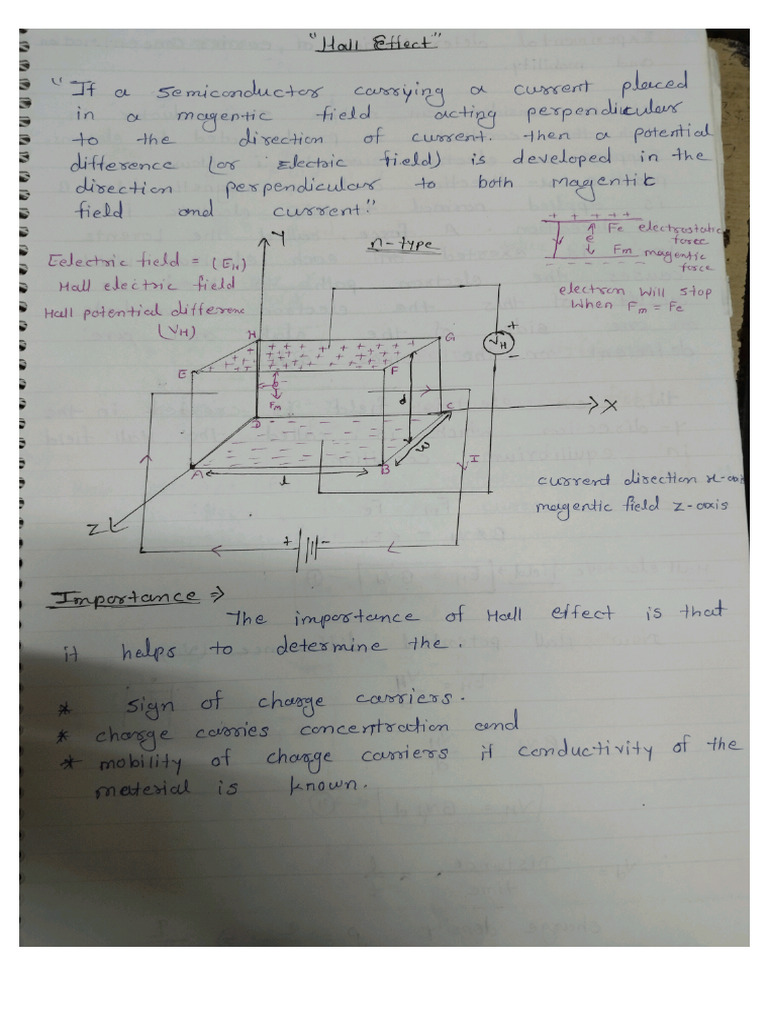 "Hall Effect"
"If a semiconductor carrying a current placed
in a magentic field acting perpendicular
to the direction of current. then a potential
difference (or Electric field) is developed in the
direction perpendicular to both magentic
field and current."
Y
n-type
+ + + + +
Fe electrostatic
forec
e
Fm magentic
force
electron will stop
when Fm = Fe
Eelectric field = (EH)
Hall electric field
Hall potential difference
(VH)
H
G
E
F
VH
+
-
e
Fm
D
d
C
X
w
A
l
B
I
Z
+ -
current direction x-axis
magentic field z-axis
Importance ⇒
The importance of Hall effect is that
it helps to determine the.
* sign of charge carriers.
* charge carries concentration and
* mobility of charge carriers if conductivity of the
material is known.